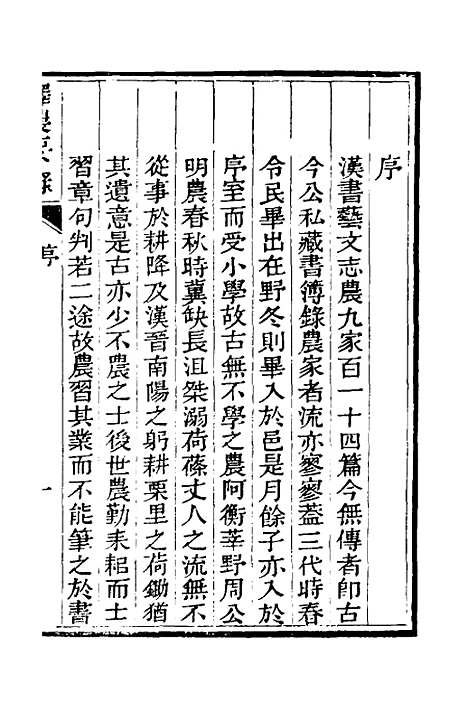 序
漢書藝文志農九家百一十四篇今無傳者卽古
今公私藏書簿錄農家者流亦寥寥蓋三代時春
令民畢出在野冬則畢入於邑是月餘子亦入於
序室而受小學故古無不學之農阿衡莘野周公
明農春秋時冀缺長沮桀溺荷蓧丈人之流無不
從事於耕降及漢晉南陽之躬耕栗里之荷鋤猶
其遺意是古亦少不農之士後世農勤耒耜而士
習章句判若二途故農習其業而不能筆之於書
序
一